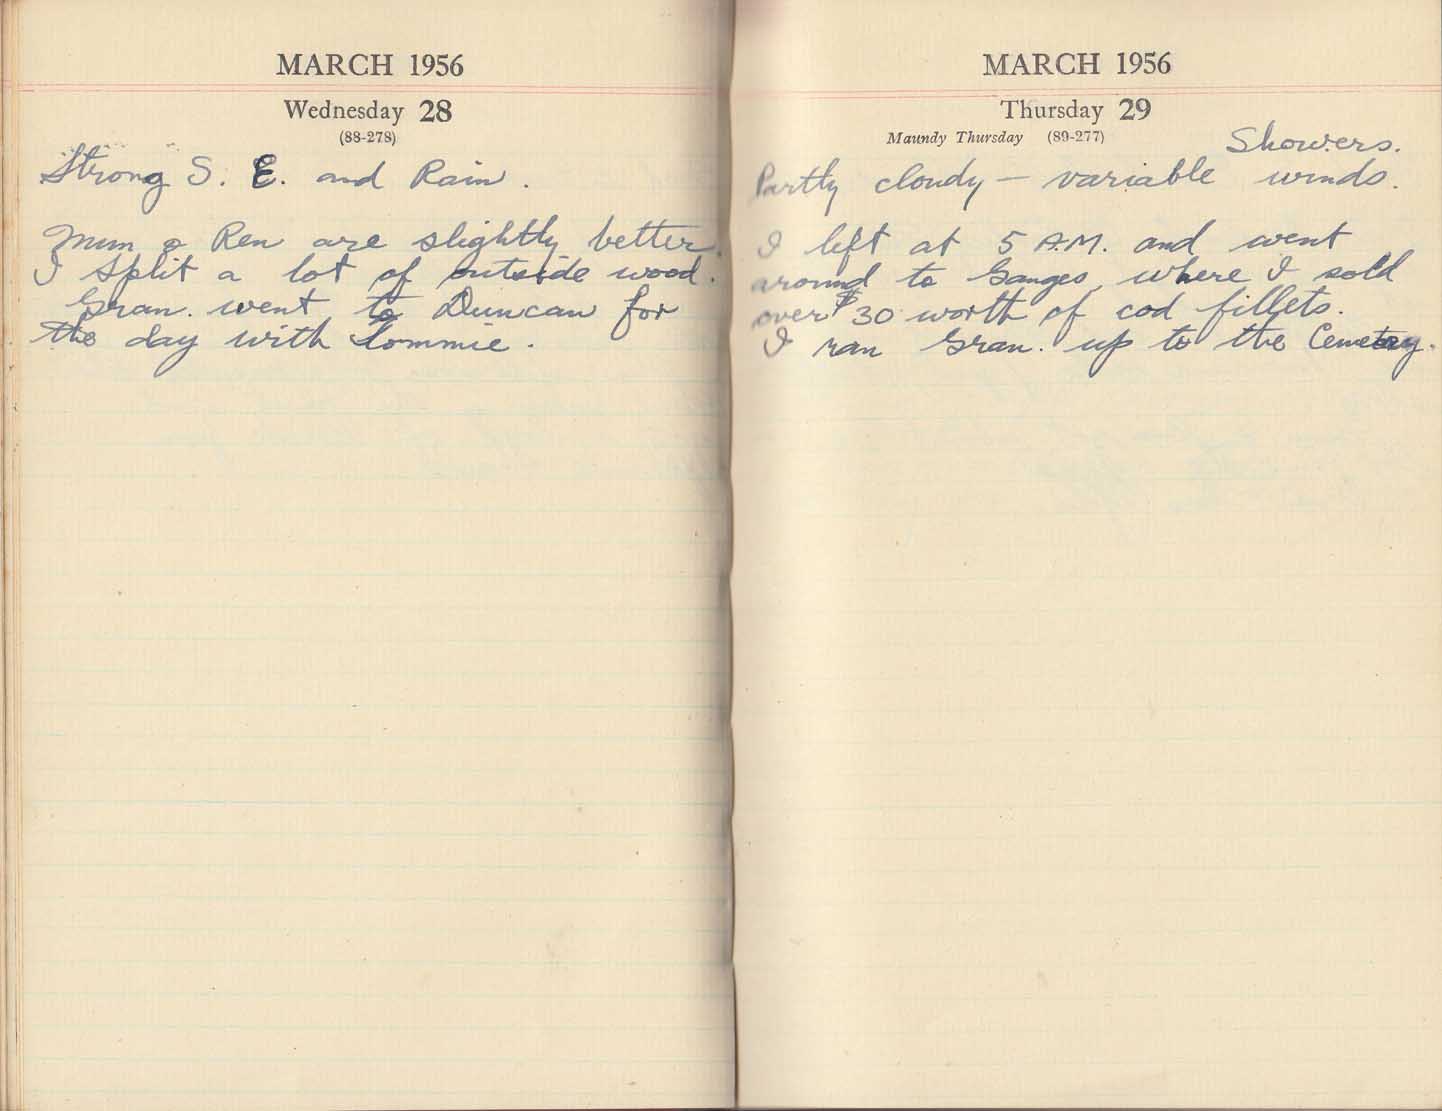 MARCH 1956
Wednesday 28
(88-278)
Strong S. E. and Rain.
Mum & Ren are slightly better.
I split a lot of outside wood.
Gran. went to Duncan for
the day with Tommie.
MARCH 1956
Thursday 29
Maundy Thursday (89-277)
Showers.
Partly cloudy — variable winds.
I left at 5 A.M. and went
around to Ganges where I sold
over $30 worth of cod fillets.
I ran Gran. up to the Cemetery.